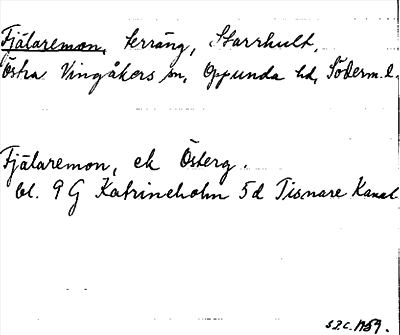 Fjälaremon, terräng, Starrhult,
Östra Vingåkers sn, Oppunda hd, Söderm.l.
Fjälaremon, ek Österg.
bl. 9 G Katrineholm 5d Tisnare Kanal
S.I.C. 1959.